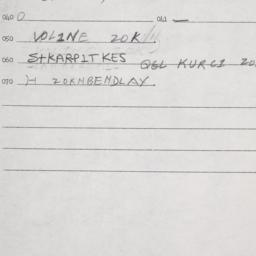 040 0 041 —
050 VOLINE 20K
060 StKARPITKES QGL KURCI 20
070 )-( 20KHBENDLAY.